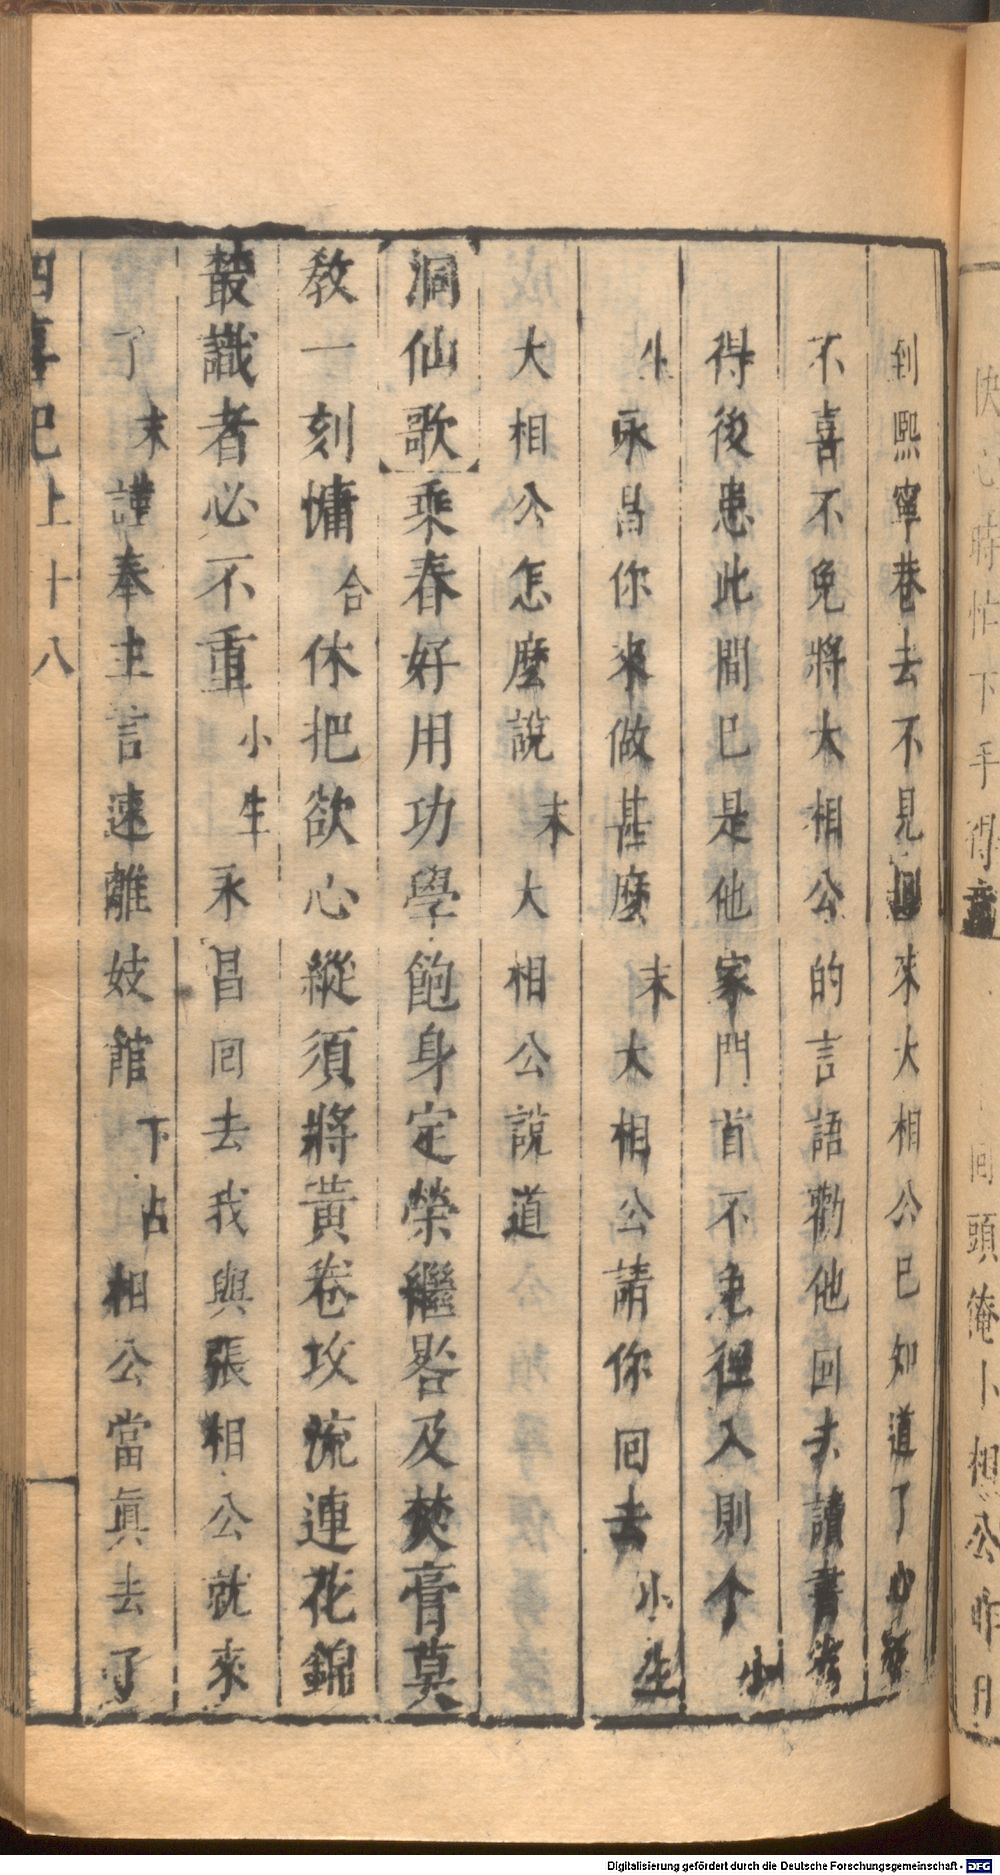 到熙寧巷去不見回來大相公已知道了心
不喜不免將大相公的言語勸他回去讀書
得後患此間已是他家門首不免徑入則个小
生永昌你來做甚麼末大相公請你回去小生
大相公怎麼說末大相公說道
洞仙歌乘春好用功學飽身定榮繼晷及焚膏莫
教一刻慵合休把欲心縱須將黃卷攻流連花錦
叢識者必不重小生永昌回去我與張相公就來
了末謹奉主言速離妓館下占相公當眞去了
四喜記上十八
快心時怕下手得 回頭俺卜想公昨日
Digitalisierung gefördert durch die Deutsche Forschungsgemeinschaft - DFG